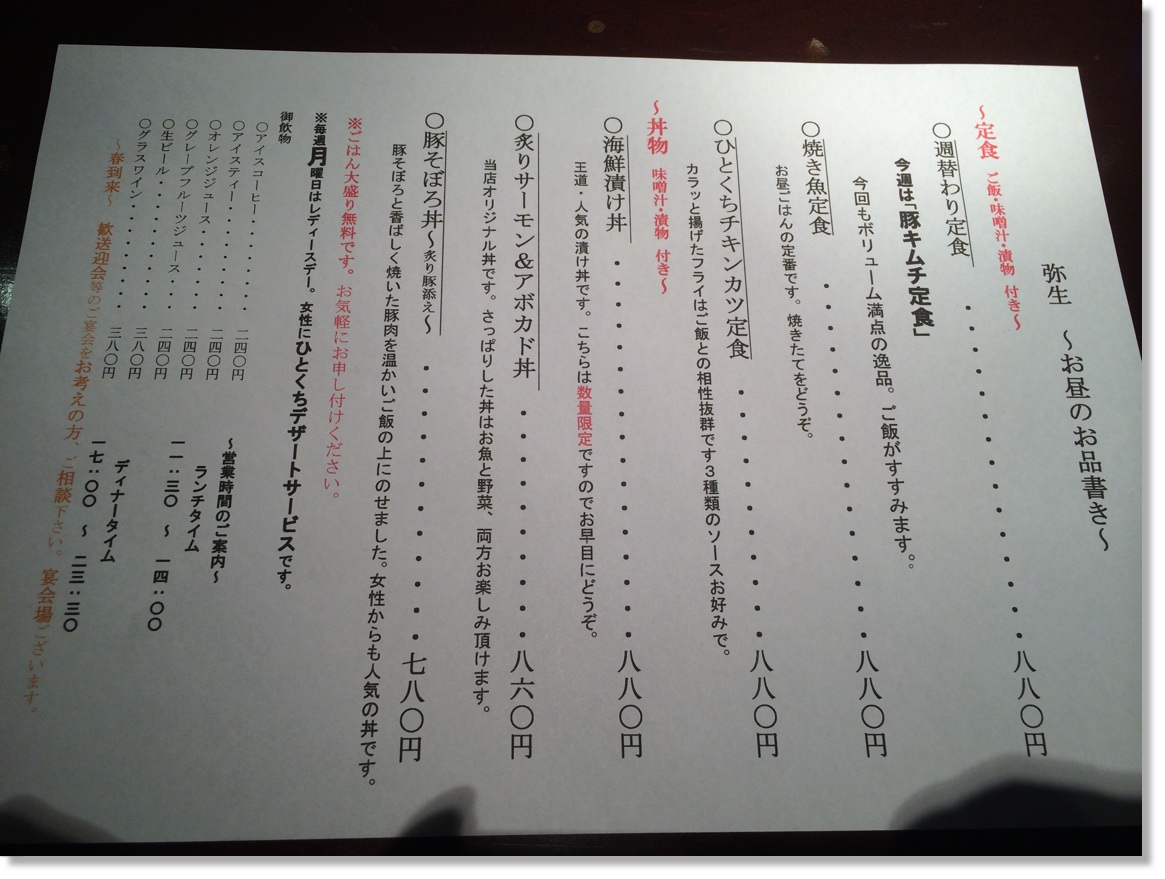 弥生　～お昼のお品書き～
～定食　ご飯・味噌汁・漬物　付き～
〇週替わり定食・・・・・・・・・・・・八八〇円
今週は「豚キムチ定食」
今回もボリューム満点の逸品。ご飯がすすみます。。
〇焼き魚定食・・・・・・・・・・・・・八八〇円
お昼ごはんの定番です。焼きたてをどうぞ。
〇ひとくちチキンカツ定食・・・・・・・・・八八〇円
カラッと揚げたフライはご飯との相性抜群です３種類のソースお好みで。
～丼物　味噌汁・漬物　付き～
〇海鮮漬け丼・・・・・・・・・・・・・・八八〇円
王道・人気の漬け丼です。こちらは数量限定ですのでお早目にどうぞ。
〇炙りサーモン＆アボカド丼・・・・・・・・・八六〇円
当店オリジナル丼です。さっぱりした丼はお魚と野菜、両方お楽しみ頂けます。
〇豚そぼろ丼～炙り豚添え～・・・・・・・・・・七八〇円
豚そぼろと香ばしく焼いた豚肉を温かいご飯の上にのせました。女性からも人気の丼です。
※ごはん大盛り無料です。お気軽にお申し付けください。
※毎週月曜日はレディースデー。女性にひとくちデザートサービスです。
御飲物
〇アイスコーヒー・・・・・・・二四〇円
〇アイスティー・・・・・・・・二四〇円
〇オレンジジュース・・・・・・二四〇円
〇グレープフルーツジュース・・・二四〇円
〇生ビール・・・・・・・・・・三八〇円
〇グラスワイン・・・・・・・・三八〇円
～営業時間のご案内～
ランチタイム
一一：三〇　～　一四：〇〇
ディナータイム
一七：〇〇　～　二三：三〇
～春到来～　歓送迎会等のご宴会をお考えの方、ご相談下さい。宴会場ございます。